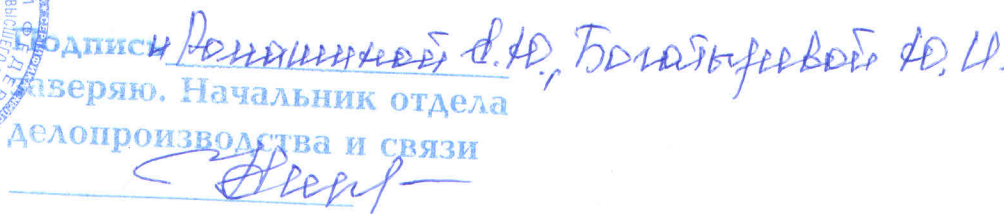 Подписи Ромашиной С.Ю., Богатыревой Ю.И.
заверяю. Начальник отдела
делопроизводства и связи